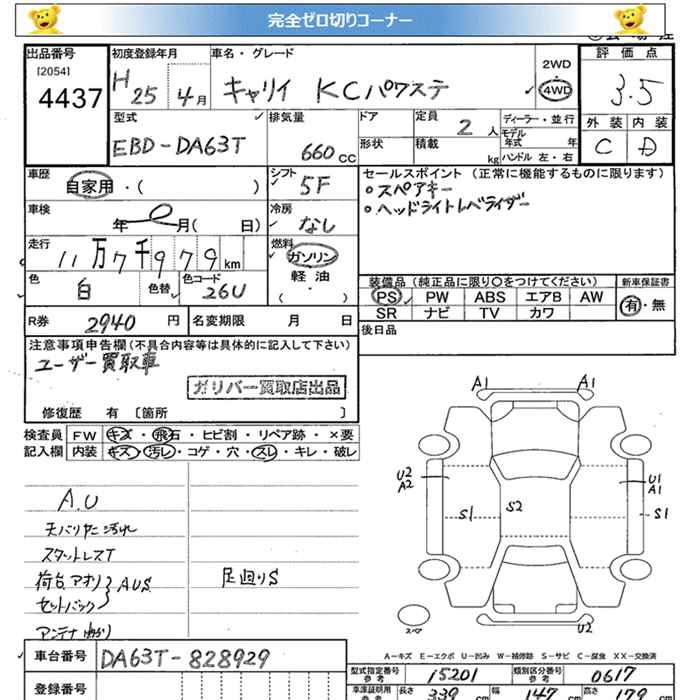 完全ゼロ切りコーナー
出品番号 [2054] 4437
初度登録年月 H25年4月
車名・グレード キャリイ KCパワステ
2WD
4WD
評価点 3.5
外装 C 内装 D
型式 EBD-DA63T
排気量 660 CC
ドア 形状
定員 2人
積載 kg
ディーラー・並行
モデル年式 年
ハンドル 左・右
車歴 自家用・( )
シフト 5F
車検 年 月( 日)
冷房 なし
走行 11万7千979km
燃料 ガソリン 軽油 ( ・ )
色 白 色替 色コード 26U
セールスポイント (正常に機能するものに限ります)
○スペアキー
○ヘッドライトレベライザー
装備品 (純正品に限り○をつけてください)
PS PW ABS エアB AW
SR ナビ TV カワ
新車保証書 有・無
後日品
R券 2940円 名変期限 月 日
注意事項申告欄 (不具合内容等は具体的に記入して下さい)
ユーザー買取車
ガリバー買取店出品
修復歴 有 〔箇所 〕
検査員記入欄 FW キズ・飛石・ヒビ割・リペア跡・×要
内装 キズ・汚レ・コゲ・穴・スレ・キレ・破レ
A.U
天バリ 汚れ
スタットレスT
荷台アオリ
セットバック
AUS
アンテナ 曲り
足廻りS
A1 A1
U2
A2
S1 S2
U1
A1
S1
U2
スペア
A-キズ E-エクボ U-凹み W-補修跡 S-サビ C-腐食 XX-交換済
車台番号 DA63T-828929
登録番号
型式指定番号 参考 15201
類別区分番号 参考 0617
車庫証明用 参考 長さ 339 cm 幅 147 cm 高さ 179 cm